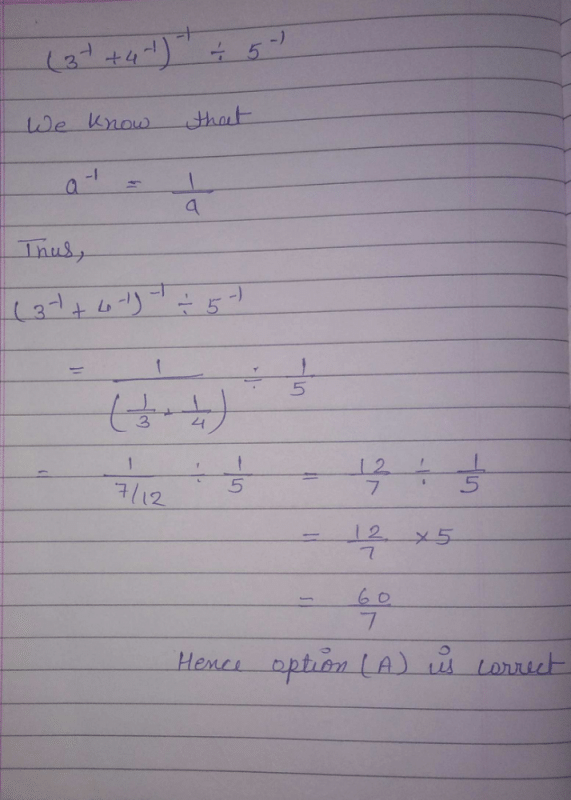 (3⁻¹ + 4⁻¹)⁻¹ ÷ 5⁻¹
We know that
a⁻¹ = 1/a
Thus,
(3⁻¹ + 4⁻¹)⁻¹ ÷ 5⁻¹
= 1/(1/3 + 1/4) ÷ 1/5
= 1/(7/12) ÷ 1/5 = 12/7 ÷ 1/5
= 12/7 × 5
= 60/7
Hence option (A) is correct